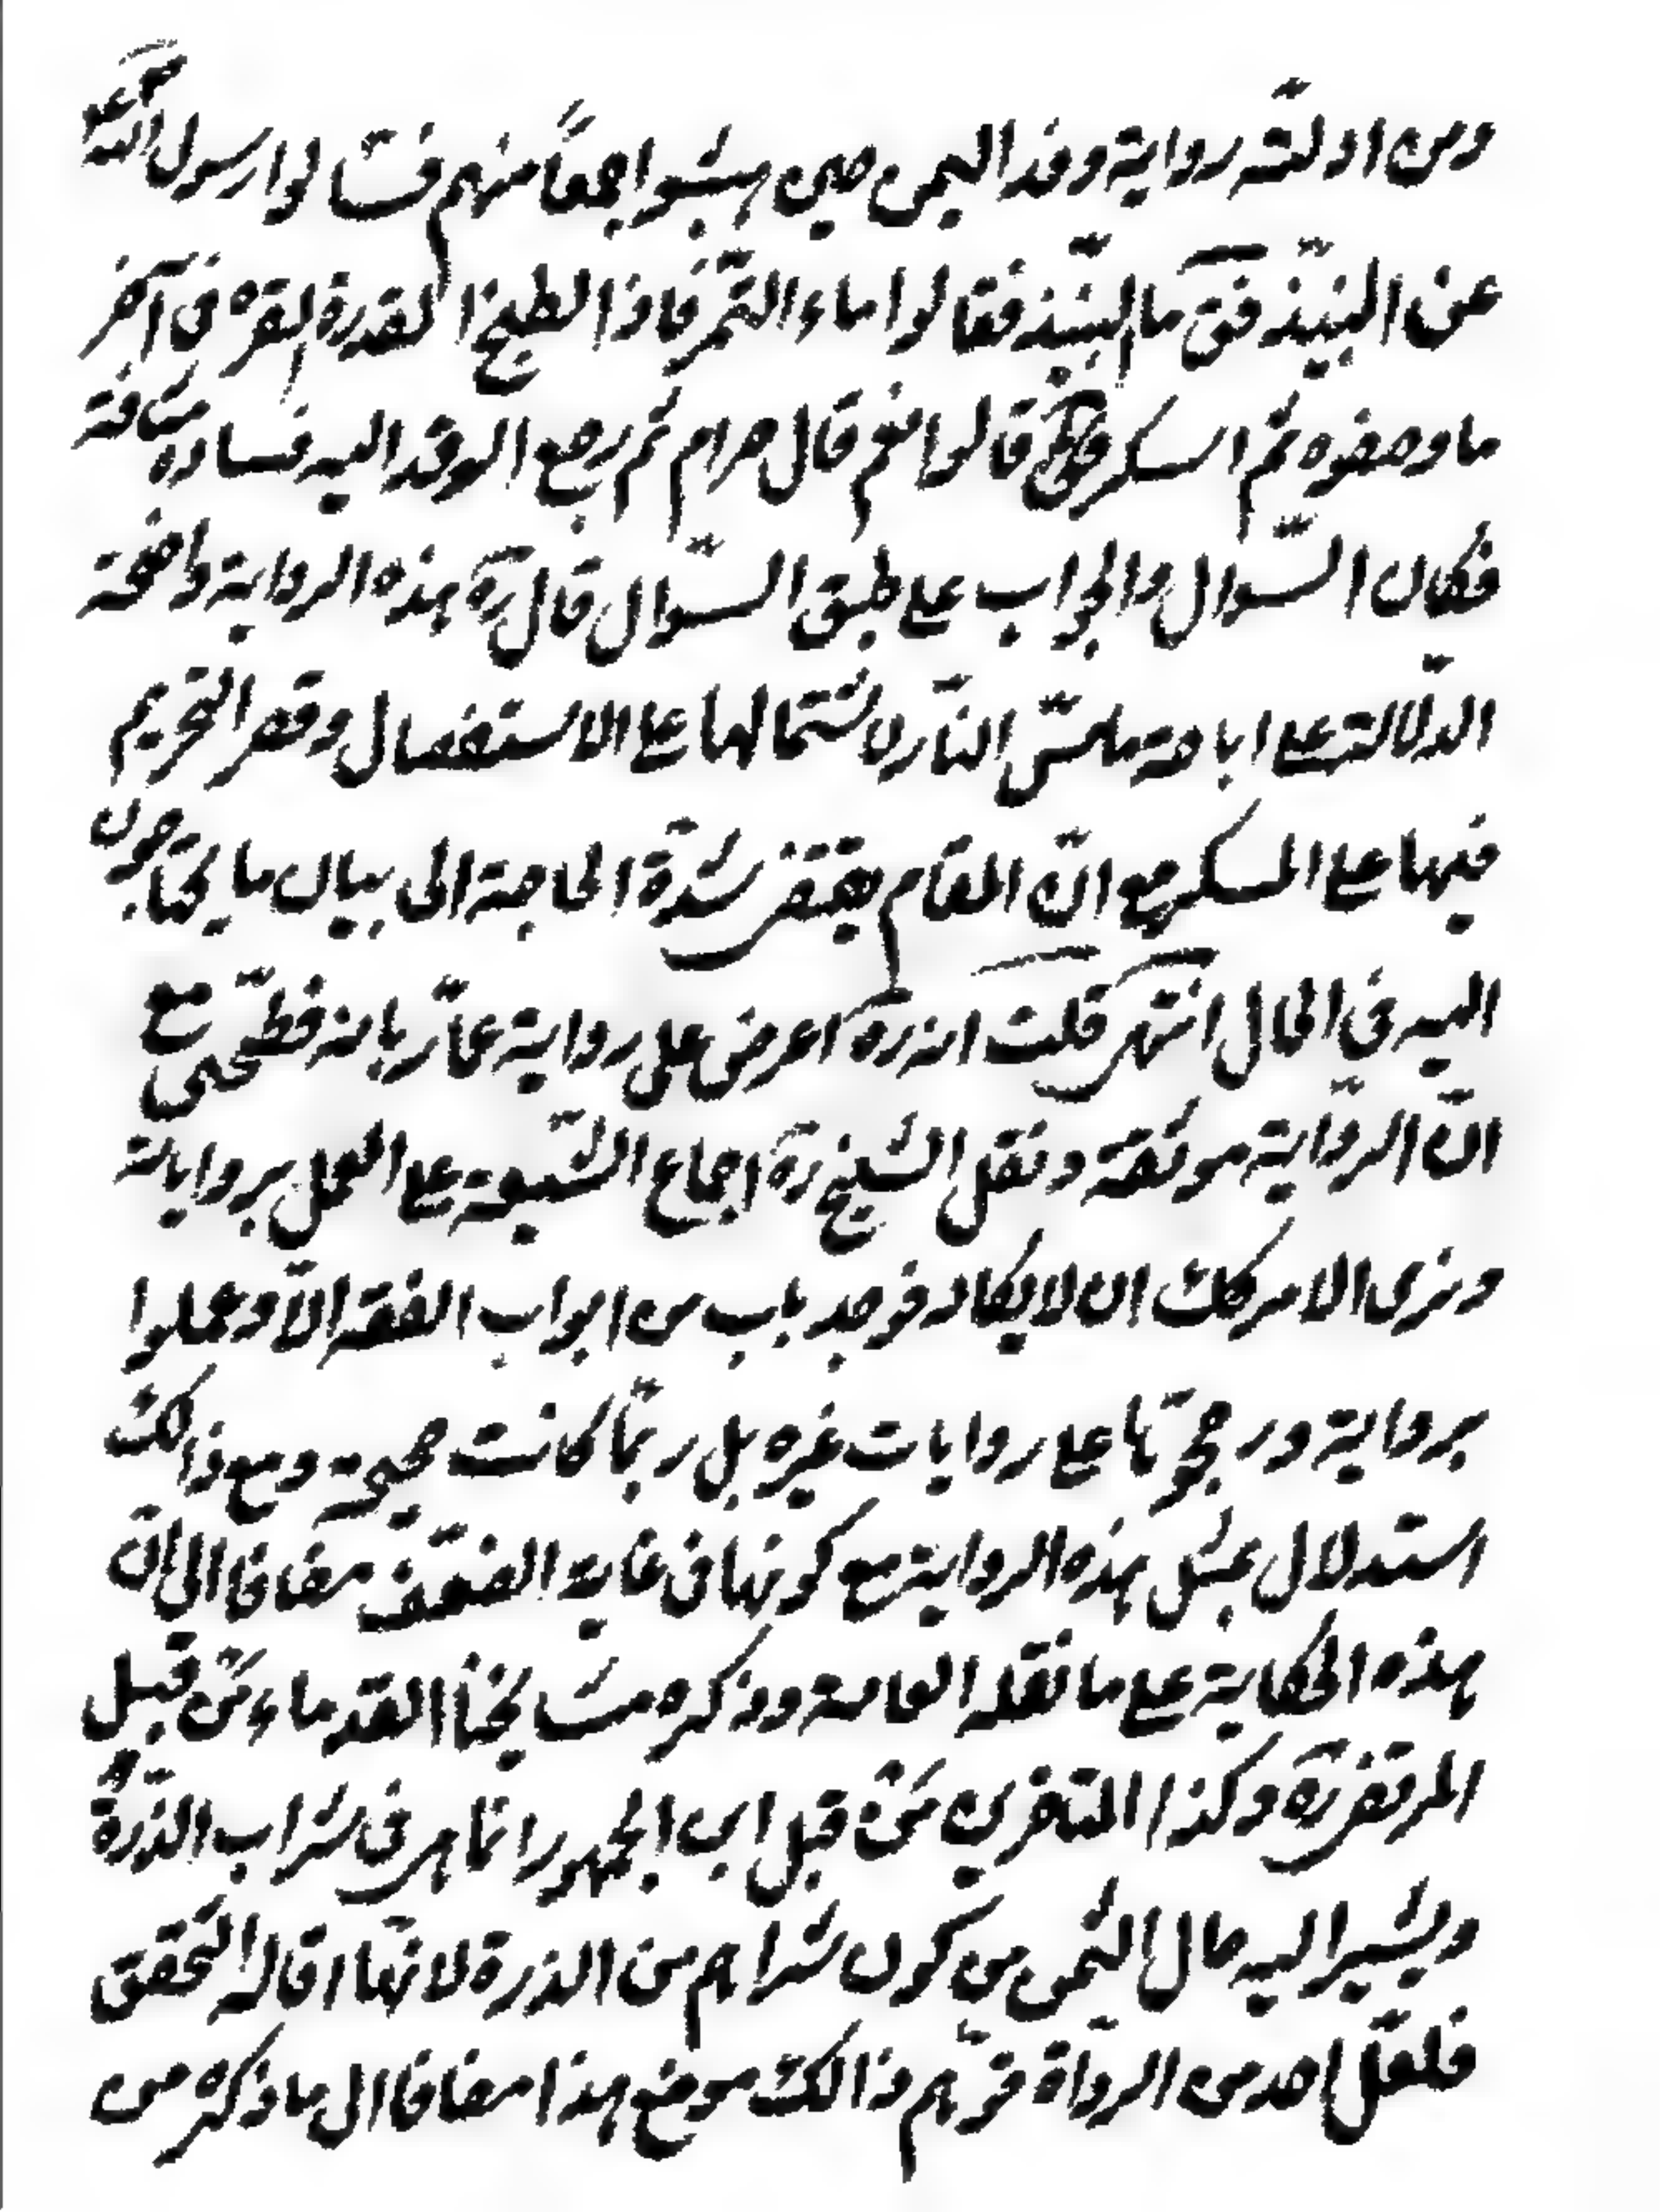 ومن ادلته رواية وفد اليمن حين بعثوا جمعاً منهم فسئالوا رسول الله ص
عن النبيذ فق ما النبيذ فقالوا ماء التمر فاذا الطبخ القدرة البقره في آخر
ما وصفوه ثم اسكر قالوا نعم قال حرام ثم رجع الوفد اليه فسادة
فكان السؤال والجواب على طبق السؤال قال ره هذه الرواية واضحة
الدلالة على اباحة ما مس النار لاشتمالها على الاستفصال وقصر التحريم
فيها على المسكر مع ان المقام يقتضى شدة الحاجة الى بيان ما يحتاجون
اليه في الحال انتهى قلت انه ره اعرض على رواية عمار بانه فطحى مع
ان الرواية موثقة ونقل الشيخ ره اجماع الشيعة على العمل برواياته
ونرى الامر كك ان لا يكاد فوجد باب من ابواب الفقه الا وعملوا
برواية ورجحوها على روايات غيره بل ربما كانت صحيحة ومع ذالك
استدلال بمثل هذه الرواية مع كونها فى غاية الضعف مضافا الى ان
هذه الحكاية على ما نقله العامة وذكره مشايخنا القدماء من قبل
المرتضى ره وكذا المتاخرين من قبل ابى الجمهور انما هى فى شراب الذرة
ويشير اليه حال اليمن من كون شرابهم من الذرة لا قاله المحقق
فلعل احد من الرواة توهم ذالك موضع هذا مضافا الى ما ذكره من